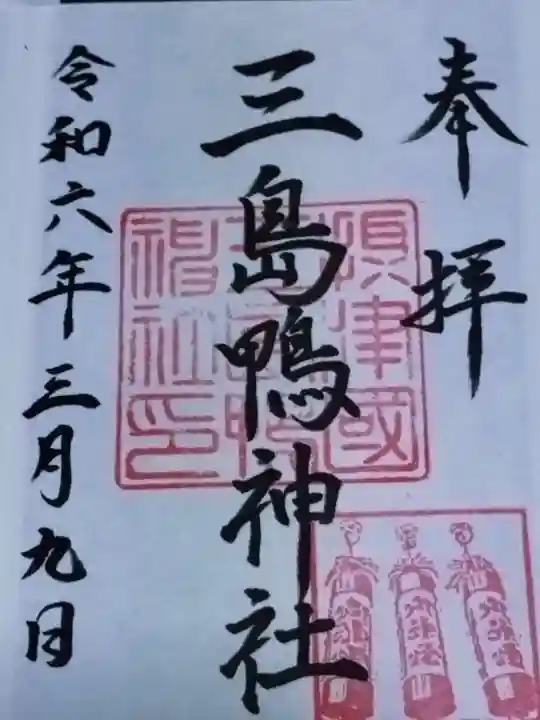 奉拝
三島鴨神社
令和六年三月九日
摂津國
三島鴨
神社印